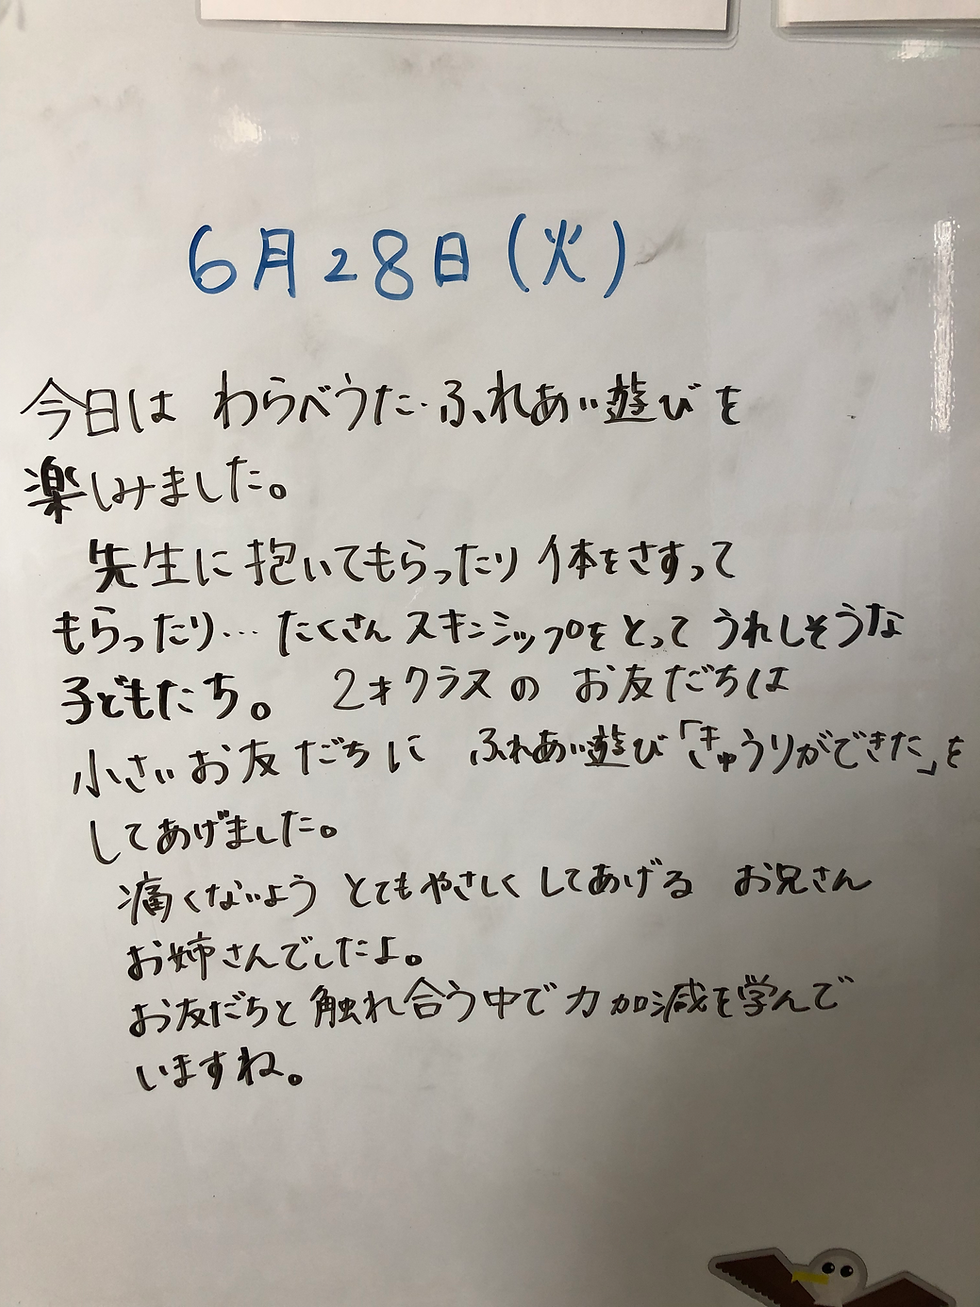 6月28日(火)
今日は わらべうた・ふれあい遊びを
楽しみました。
先生に抱いてもらったり 体をさすって
もらったり… たくさん スキンシップを とって うれしそうな
子どもたち。 2才クラスの お友だちは
小さいお友だちに ふれあい遊び「きゅうりができた」を
してあげました。
痛くないよう とてもやさしく してあげる お兄さん
お姉さんでしたよ。
お友だちと 触れ合う中で 力加減を学んで
いますね。